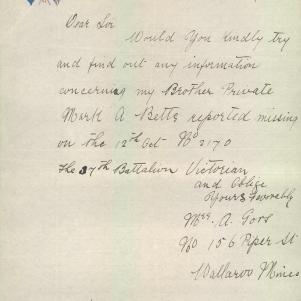 Dear Sir
Would You kindly try
and find out any information
concerning my Brother Private
Mark A Betts reported missing
on the 12th Oct No 2170
The 37th Battalion Victorian
and Oblige
Yours Favorably
Mrs. A. Gors
No 156 Piper St
Wallaroo Mines